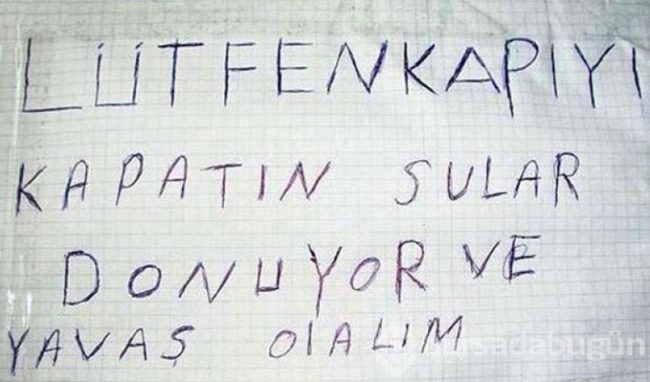 LÜTFEN KAPIYI
KAPATIN SULAR
DONUYOR VE
YAVAŞ OlALIM